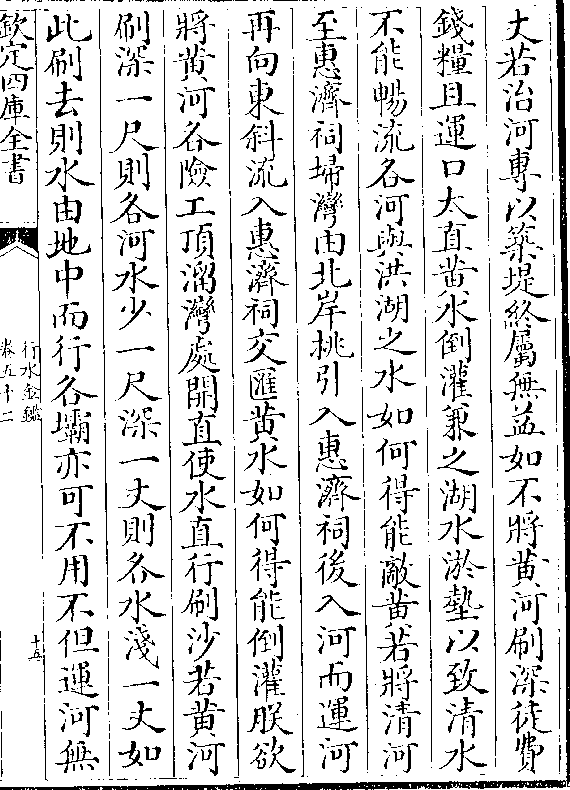 大若治河專以築堤終屬無益如不將黄河刷深徒費
錢糧且運口太直黄水倒灌兼之湖水淤墊以致清水
不能暢流各河與洪湖之水如何得能敵黄若將清河
至惠濟祠埽灣由北岸桃引入惠濟祠後入河而運河
再向東斜流入惠濟祠交匯黄水如何得能倒灌朕欲
將黄河各險工頂溜灣處開直使水直行刷沙若黄河
刷深一尺則各河水少一尺深一丈則各水淺一丈如
此刷去則水由地中而行各壩亦可不用不但運河無
欽定四庫全書
行水金鑑
卷五十二
十五